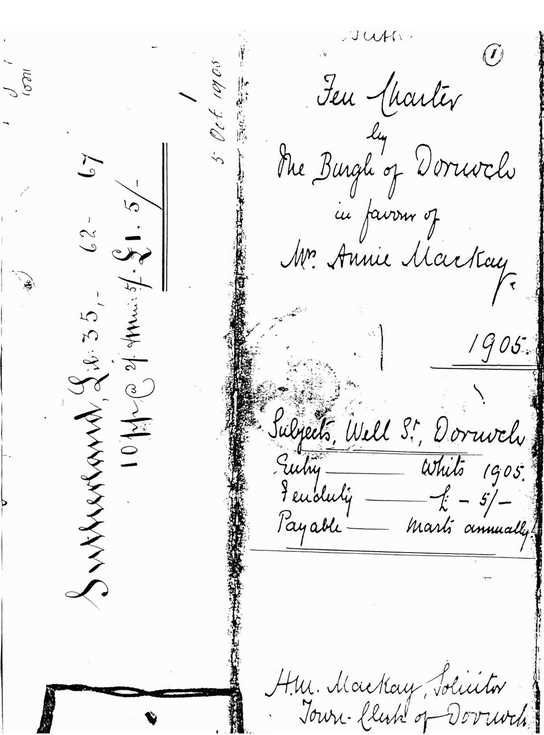 5 Oct. 1905
Sutherland, Lib. 35, - 62 - 67
£1. 5/-
1
Feu Charter
by
The Burgh of Dornoch
in favour of
Mrs. Annie Mackay.
1905.
Subjects, Well St, Dornoch
Entry — Whits 1905.
Feuduty — £ - 5/-
Payable — Marts annually
H.M. Mackay, Solicitor
Town-Clerk of Dornoch